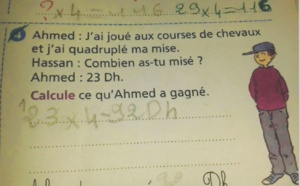 ? x 4 = 116 29 x 4 = 116
Ahmed : J'ai joué aux courses de chevaux
et j'ai quadruplé ma mise.
Hassan : Combien as-tu misé ?
Ahmed : 23 Dh.
Calcule ce qu'Ahmed a gagné.
1
23 x 4 = 92 Dh
92 Dh